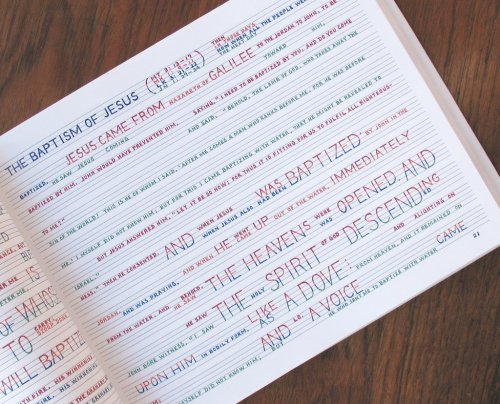 THE BAPTISM OF JESUS
THEN
IN THOSE DAYS
NOW WHEN ALL THE PEOPLE WERE
THE NEXT DAY
JESUS CAME FROM NAZARETH OF GALILEE TO THE JORDAN TO JOHN, TO BE
BAPTIZED, HE SAW JESUS COMING TOWARD HIM,
BAPTIZED BY HIM. JOHN WOULD HAVE PREVENTED HIM, SAYING, "I NEED TO BE BAPTIZED BY YOU, AND DO YOU COME
AND SAID, "BEHOLD, THE LAMB OF GOD, WHO TAKES AWAY THE
TO ME?"
SIN OF THE WORLD! THIS IS HE OF WHOM I SAID, 'AFTER ME COMES A MAN WHO RANKS BEFORE ME, FOR HE WAS BEFORE
BUT JESUS ANSWERED HIM, "LET IT BE SO NOW; FOR THUS IT IS FITTING FOR US TO FULFIL ALL RIGHTEOUS-
ME.' I MYSELF DID NOT KNOW HIM; BUT FOR THIS I CAME BAPTIZING WITH WATER, THAT HE MIGHT BE REVEALED TO
NESS." THEN HE CONSENTED. AND WHEN JESUS WAS BAPTIZED BY JOHN IN THE
WHEN JESUS ALSO HAD BEEN
ISRAEL."
JORDAN AND WAS PRAYING, AND WHEN HE WENT UP OUT OF THE WATER, IMMEDIATELY
CAME
FROM THE WATER, AND BEHOLD, THE HEAVENS WERE OPENED, AND
HE SAW WAS
HE SAW THE HOLY SPIRIT OF GOD DESCENDING
JOHN BORE WITNESS, "I SAW
LIKE A DOVE AND ALIGHTING ON
AS FROM HEAVEN, AND IT REMAINED ON
UPON HIM IN BODILY FORM, AND LO, A VOICE CAME
HIM. I MYSELF DID NOT KNOW HIM; BUT HE WHO SENT ME TO BAPTIZE WITH WATER
21
OF WHOS
WILL BAPTIZ